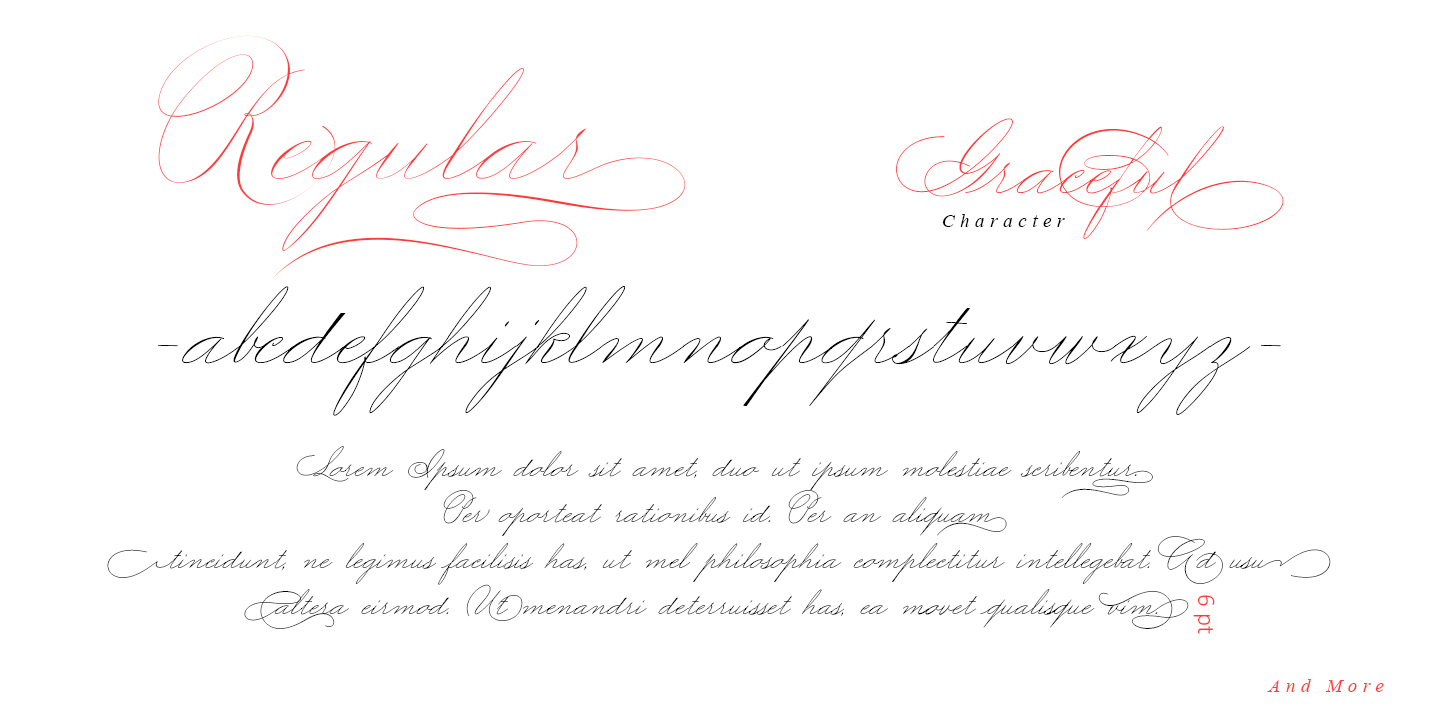 Regular
Graceful
Character
-abcdefghijklmnopqrstuvwxyz-
Lorem Ipsum dolor sit amet, duo ut ipsum molestiae scribentur.
Per oporteat rationibus id. Per an aliquam
tincidunt, ne legimus facilisis has, ut mel philosophia complectitur intellegebat. Ad usu
altera eirmod. Ut menandri deterruisset has, ea movet qualisque vim.
6 pt
And More